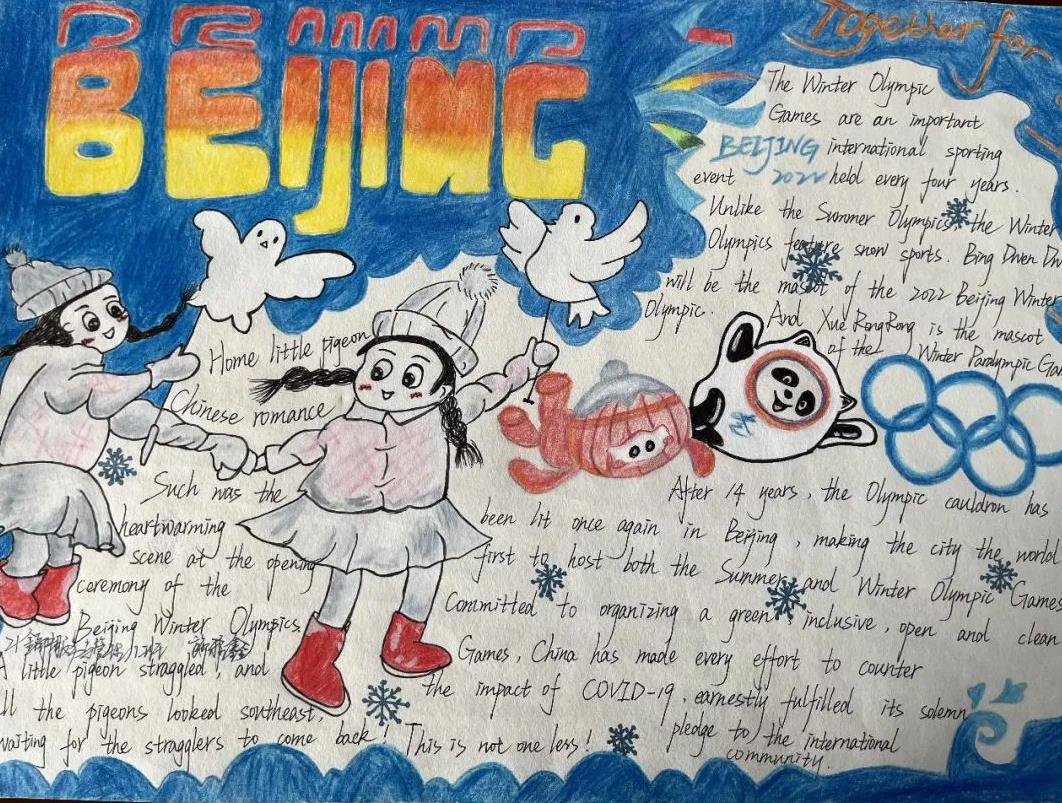 BEIJING
Together for
The Winter Olympic
Games are an important
BEIJING international sporting
event 2022 held every four years.
Unlike the Summer Olympics, the Winter
Olympics feature snow sports. Bing Dwen Dw
will be the mascot of the 2022 Beijing Winter
Olympic. And Xue RongRong is the mascot
of the Winter Paralympic Gam
Home little pigeon
Chinese romance
Such was the
heartwarming
scene at the opening
ceremony of the
Beijing Winter Olympics
A little pigeon straggled, and
ll the pigeons looked southeast,
waiting for the stragglers to come back! This is not one less!
After 14 years, the Olympic cauldron has
been lit once again in Beijing, making the city the world
first to host both the Summer and Winter Olympic Games
Committed to organizing a green, inclusive, open and clean
Games, China has made every effort to counter
the impact of COVID-19, earnestly fulfilled its solemn
pledge to the international
community.